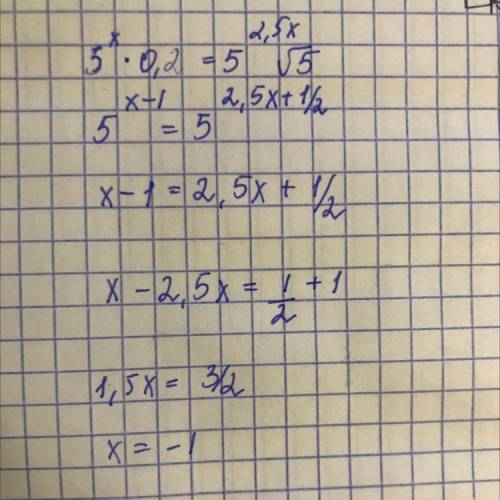 5^x · 0,2 = 5^2,5x √5
5^x-1 = 5^2,5x+1/2
x - 1 = 2,5x + 1/2
x - 2,5x = 1/2 + 1
1,5x = 3/2
x = -1